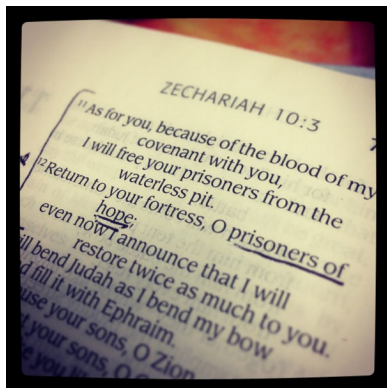 ZECHARIAH 10:3
11 As for you, because of the blood of my
covenant with you,
I will free your prisoners from the
waterless pit.
12 Return to your fortress, O prisoners of
hope;
even now I announce that I will
restore twice as much to you.
will bend Judah as I bend my bow
fill it with Ephraim.
your sons, O Zion
your sons, O
you